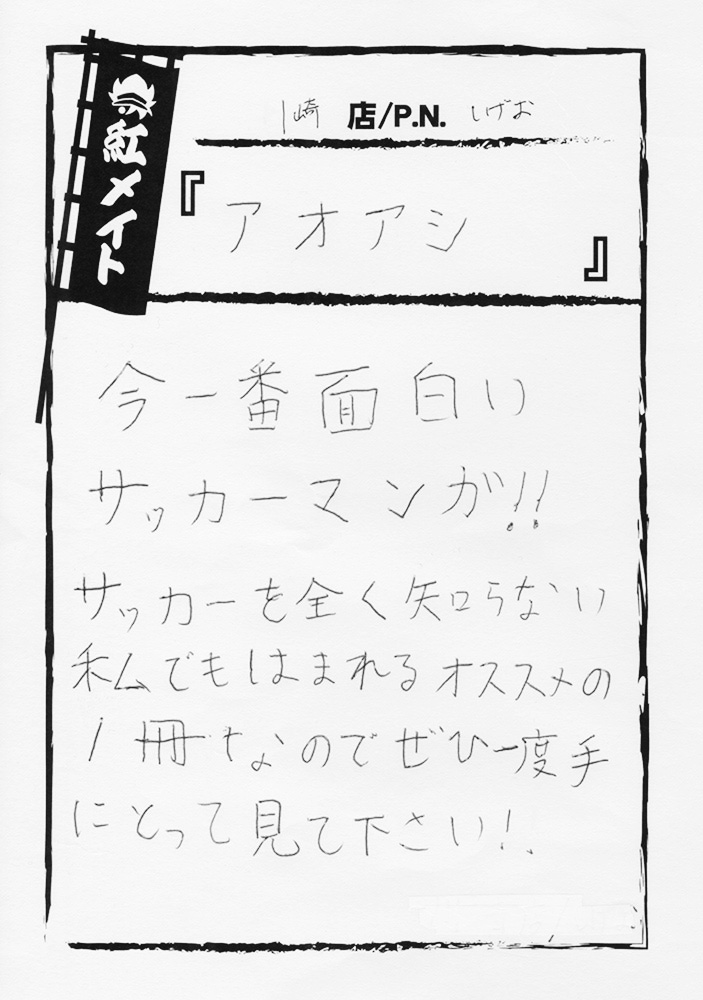 紅メイト
崎 店/P.N. しげお
『アオアシ』
今一番面白い
サッカーマンガ!!
サッカーを全く知らない
私でもはまれるオススメの
1冊なのでぜひ一度手
にとって見て下さい!